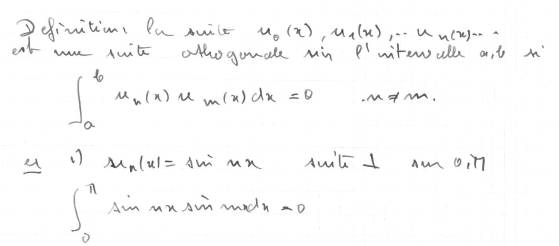 Definition, la suite u₀(x), u₁(x), .. uₙ(x)...
est une suite orthogonale sur l'intervalle a, b si
∫ₐᵇ uₙ(x) uₘ(x) dx = 0 n ≠ m.
ex 1) uₙ(x) = sin nx suite ⊥ sur 0, π
∫₀^π sin nx sin mx dx = 0